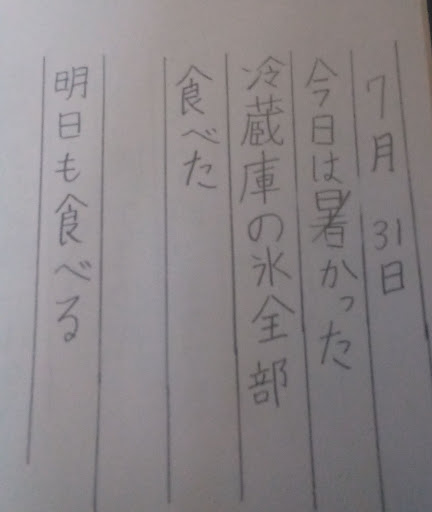 7月 31日
今日は暑かった
冷蔵庫の氷全部
食べた
明日も食べる